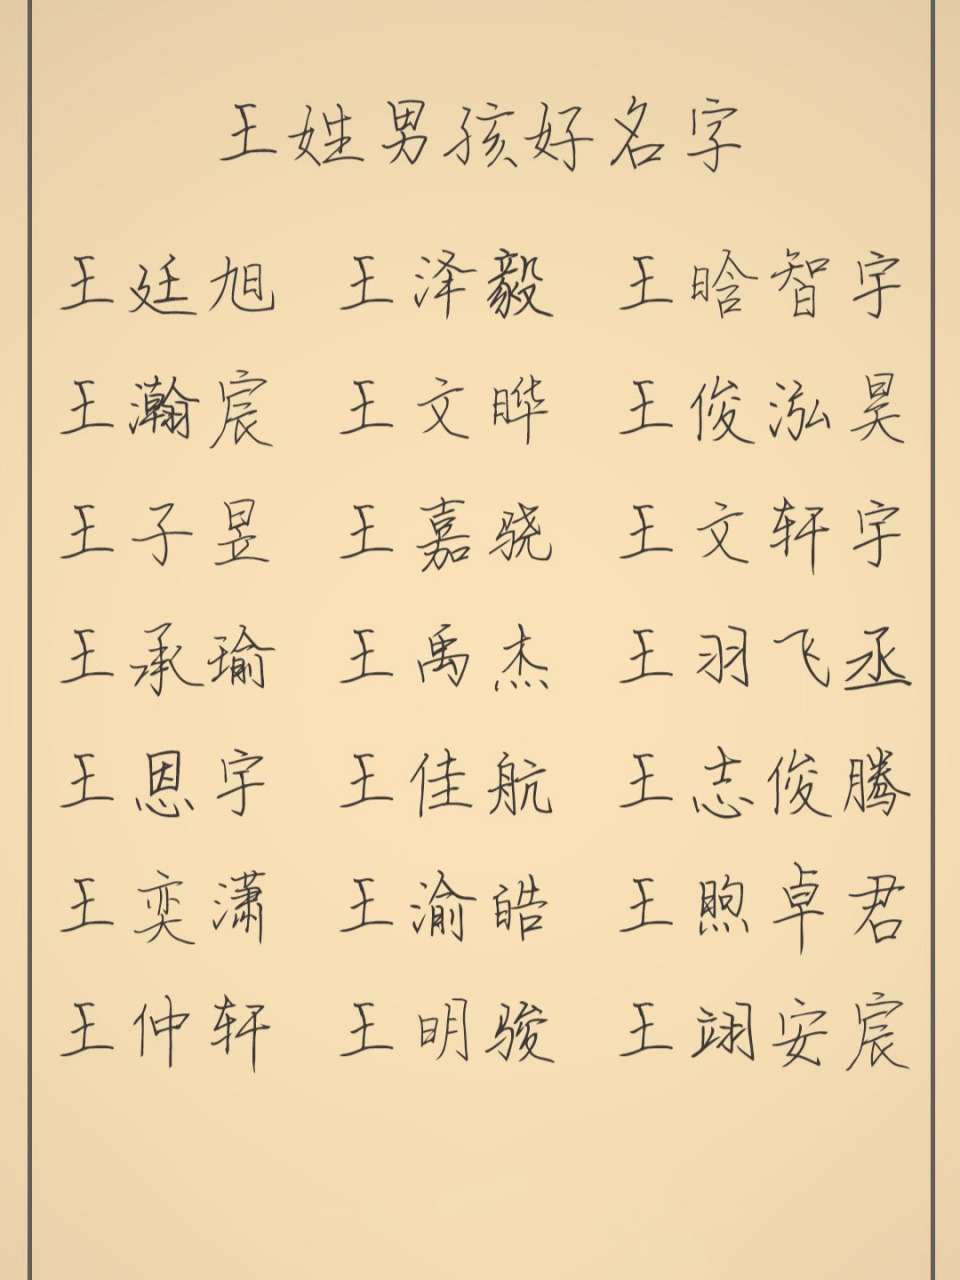 王姓男孩好名字
王廷旭 王泽毅 王晗智宇
王瀚宸 王文晔 王俊泓昊
王子昱 王嘉骁 王文轩宇
王承瑜 王禹杰 王羽飞丞
王恩宇 王佳航 王志俊腾
王奕潇 王渝皓 王煦卓君
王仲轩 王明骏 王翊安宸